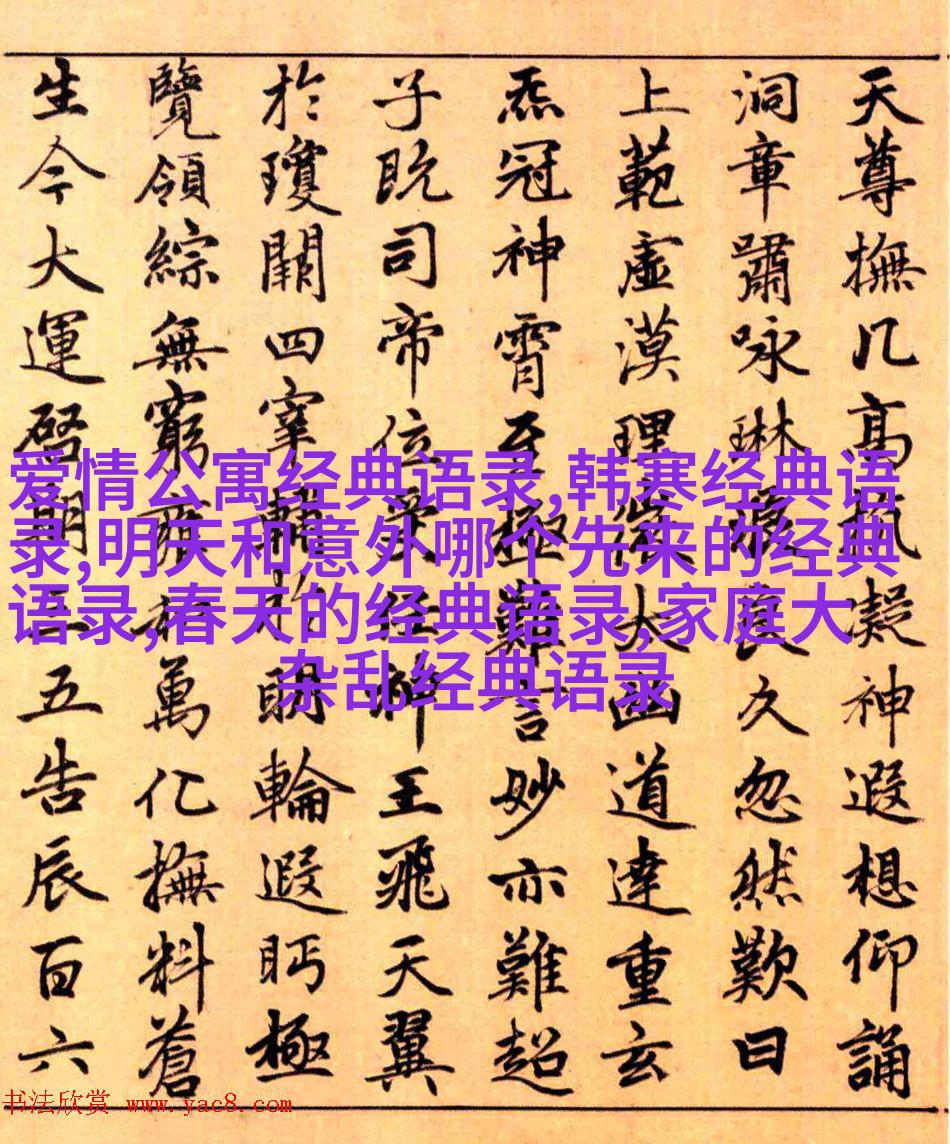 天尊撫几高凝神遐想仰誦
洞章嘯咏琳良久忽然歎曰
上範虛漠理微大幽道達重玄
炁冠神霄至極難言妙亦難超
子既司帝位王飛天翼
於瓊闕四宰輔於眄輪遐眄極
覽領綜無窮萬化撫料蒼
生今大運啓期三五告辰百六
爱情公寓经典语录,韩寒经典语
录,明天和意外哪个先来的经典
语录,春天的经典语录,家庭大
杂乱经典语录
书法欣赏 www.yac8.com